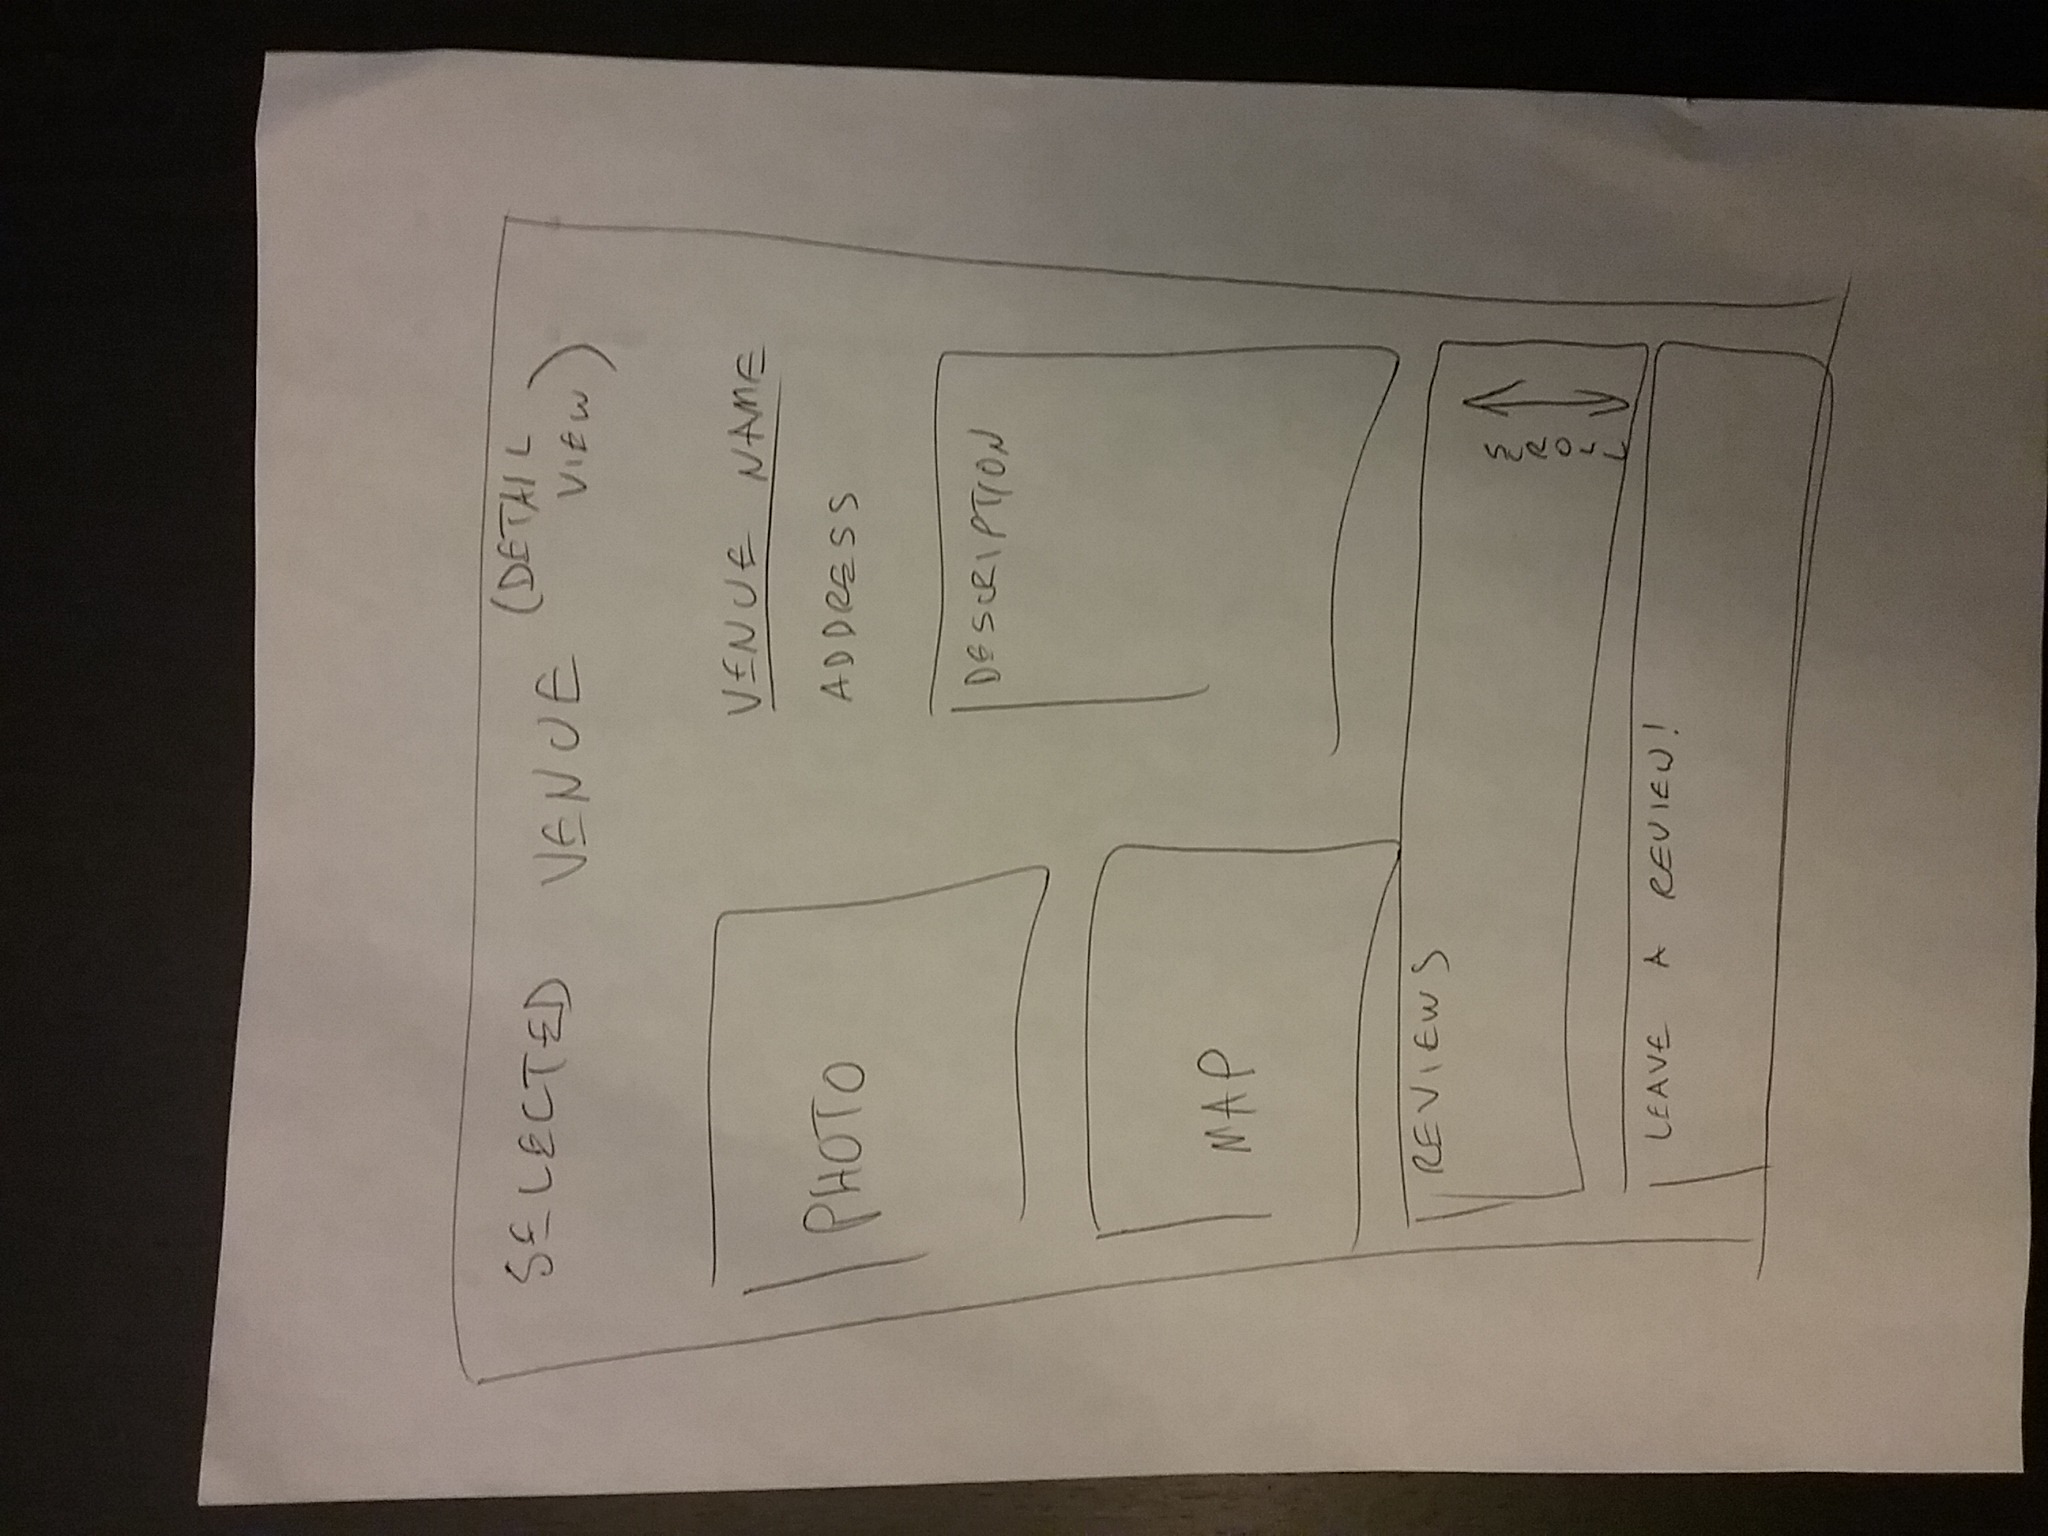 SELECTED VENUE (DETAIL VIEW)
PHOTO
VENUE NAME
ADDRESS
DESCRIPTION
MAP
REVIEWS
SCROLL
LEAVE A REVIEW!